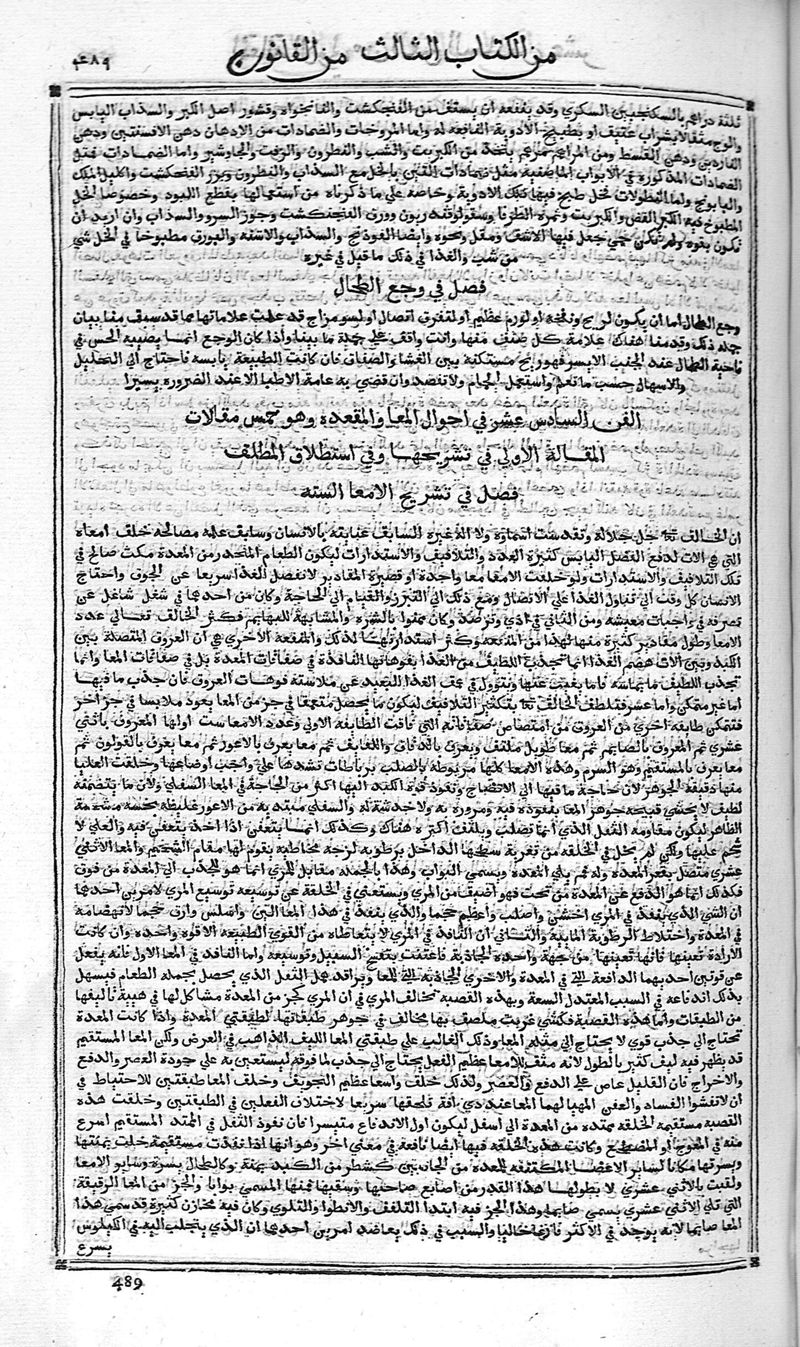 من الكتاب الثالث من القانون
٤٨٩
ثلثة دراهم بالسكنجبين السكري وقد ينفعه ان يستف من الفنجنكشت والنانخواه وقشور اصل الكبر والسذاب اليابس
والوج مثقالا بشراب عتيق او بطبيخ الادوية النافعه له واما المروخات والضمادات من الادهان دهن الافسنتين ودهن
الناردين ودهن القسط ومن المراهم مراهم يتخذ من الكبريت والشب والنطرون والزفت والجاوشير واما الضمادات فمثل
الضمادات المذكورة في الابواب الماضية مثل ضمادات التين بالخل مع السذاب والنطرون وبزر الفنجنكشت واكليل الملك
والبابونج واما النطولات فخل طبخ فيها تلك الادوية وخاصة علي ما ذكرناه من استعمالها بقطع اللبود وخصوصا الخل
المطبوخ فيه الكبر الغض والكبريت وثمرة الطرفا وسقولوقندريون وورق الفنجنكشت وجوز السرو والسذاب وان اريد ان
تكون بقوه ولم تكن حمي جعل فيها الاشق ومقل ونحوه وايضا الفوذنج والسذاب والاشنه والبورق مطبوخا في الخل شي
من شب والغذا في ذلك ما قيل في غيره
فصل في وجع الطحال
وجع الطحال اما ان يكون لريح ونفخه او لورم عظيم او لتفرق اتصال او لسو مزاج قد علمت علاماتها مما قد سبق منا بيان
جمله ذلك وقدمنا هناك علامة كل صنف منها وانت واقف علي جملة ما بينا واذا كان الوجع انما يصيبه الحس في
ناحية الطحال عند الجنب الايسر فهو ريح مستكنه بين الغشا والصفاق فان كانت الطبيعة يابسه فاحتاج الي التحليل
والاسهال حسب ما تعلم واستعمل الحمام ولا تفصد وان قضي به عامة الاطبا الا عند الضروره يسيرا
الفن السادس عشر في احوال المعا والمقعدة وهو خمس مقالات
المقالة الاولي في تشريحها وفي استطلاق المطلق
فصل في تشريح الامعا الستة
ان الخالق تع جل جلاله وتقدست اسماوه ولا اله غيره السابق عنايته بالانسان وسابق علمه مصالحه خلق امعاه
التي هي الات لدفع الفضل اليابس كثيرة العدد والتلافيف والاستدارات ليكون الطعام المنحدر من المعدة مكث صالح في
تلك التلافيف والاستدارات ولو خلقت الامعا معا واحدة او قصيرة المقادير لانفصل الغذا سريعا عن الجوف واحتاج
الانسان كل وقت الي تناول الغذا علي الاتصال ومع ذلك الي التبرز والقيام الي الحاجة وكان من احدهما في شغل شاغل عن
تصرفه في واجبات معيشته ومن الثاني في اذي وترصد وكان ممنوا بالشره والمشابهة للبهايم فكثر الخالق تعالي عدد
الامعا وطول مقادير كثيرة منها لهذا من المنفعة وكثر استدارتها لذلك والمنفعة الاخري هي ان العروق المتصلة بين
الكبد وبين الات هضم الغذا انما تجذب اللطيف من الغذا بفوهاتها النافذة في صفاقات المعدة بل في صفاقات المعا وانما
تجذب اللطيف ما يماسه فاما يغيب عنها ويتوغل في عمق الغذا البعيد عن ملامسة فوهات العروق فان جذب ما فيها
اما غير ممكن واما عسر فتلطف الخالق تع بتكثير التلافيف ليكون ما يحصل متعمقا في جز من المعا يعود ملامسا في جز اخر
فتتمكن طايفه اخري من العروق من امتصاص صفاوته التي فاتت الطايفه الاولي وعدد الامعا ست اولها المعروف باثني
عشري ثم المعروف بالصايم ثم معا طويل ملتف ويعرف بالدقاق واللفايف ثم معا يعرف بالاعور ثم معا يعرف بالقولون ثم
معا يعرف بالمستقيم وهو السرم وهذه الامعا كلها مربوطه بالصلب برباطات تشدها علي واجب اوضاعها وخلقت العليا
منها دقيقة الجوهر لان حاجة ما فيها الي الانضاج ونفوذ قوة الكبد اليها اكثر من الحاجة في المعا السفلي ولان ما يتضمنه
لطيف لا يخشي فسخه جوهر المعا بنفوذه فيه ومروره به ولا خدشه له والسفلي مبتديه من الاعور غليظه ثخينه مشحمة
الظاهر ليكون مقاومه الثفل الذي انما يصلب ويكثف اكثره هناك وكذلك انما يتعفن اذا اخذ يتعفن فيه والعلي لا
شحم عليها ولكن لم تخل في الخلقه من تغرية سطحها الداخل برطوبه لزجه مخاطيه يقوم لها مقام الشحم والمعا الاثني
عشري متصل بقعر المعدة وله فم يلي المعدة ويسمي البواب وهذا بالجمله مقابل للمري انما هو للجذب الي المعدة من فوق
فكذلك انما هو للدفع عن المعدة من تحت فهو اضيق من المري ويستغني في الخلقة عن توسيعه توسيع المري لامرين احدهما
ان الشي الذي ينفذ في المري اخشن واصلب واعظم حجما والذي ينفذ في هذا المعا الين واسلس وارق حجما لانهضامه
في المعدة واختلاط الرطوبة المايية والثاني ان النافذ في المري لا يتعاطاه من القوي الطبيعه الا قوه واحده وان كانت
الارادة تعينها فانها تعينها من جهة واحدة الجاذبة فاعينت بتفسيح السبيل وتوسيعه واما النافذ في المعا الاول فانه ينفعل
عن قوتين احديهما الدافعة التي في المعدة والاخري الجاذبة التي للمعا ويرافد هما الثفل الذي يحصل بجمله الطعام فيسهل
بذلك اندفاعه في السبب المعتدل السعة وهذه القصبه تخالف المري في ان المري كجز من المعدة مشاكل لها في هيية تاليفها
من الطبقات واما هذه القصبة فكشي غريب ملصق بها مخالف في جوهر طبقاتها لطبقتي المعدة واذا كانت المعدة
تحتاج الي جذب قوي لا يحتاج الي مثله المعا وذلك الغالب علي طبقتي المعا الليف الذاهب في العرض ولكن المعا المستقيم
قد يظهر فيه ليف كثير بالطول لانه منقٍ للامعا عظيم الفعل يحتاج الي جذب لما فوقه ليستعين به علي جودة العصر والدفع
والاخراج فان القليل عاص علي الدفع والعصر ولذلك خلقت واسعا عظيم التجويف وخلق المعا طبقتين للاحتياط في
ان لا تفشوا الفساد والعفن المهيا لهما المعا عند ادني افة تلحقها سريعا لاختلاف الفعلين في الطبقتين وخلقت هذه
القصبه مستقيمه الخلقه ممتده من المعدة الي اسفل ليكون اول الاندفاع متيسرا فان نفوذ الثفل في الممتد المستقيم اسرع
منه في المعوج او المضطجع وكانت هذه الخلقه فيها ايضا نافعة في معني اخر وهو انها اذا نفذت مستقيمة خلت يمنتها
ويسرتها مكانا لساير الاعضا المكتنفه للمعدة من الجانبين كشطر من الكبد يمنة وكالطحال يسرة وساير الامعا
ولقبت بالاثني عشري لا بطولها هذا القدر من اصابع صاحبها وسعتها فمها المسمي بوابا والجز من المعا الرقيقة
التي تلي الاثني عشري يسمي صايما وهذا الجز فيه ابتدا التلفف والانطوا والتلوي وكان فيه مخازن كثيرة قد سمي هذا
المعا صايما لانه يوجد في الاكثر فارغا خاليا والسبب في ذلك يعاضد امرين احدهما ان الذي يتجلب اليه في الكيلوس
يسرع
489